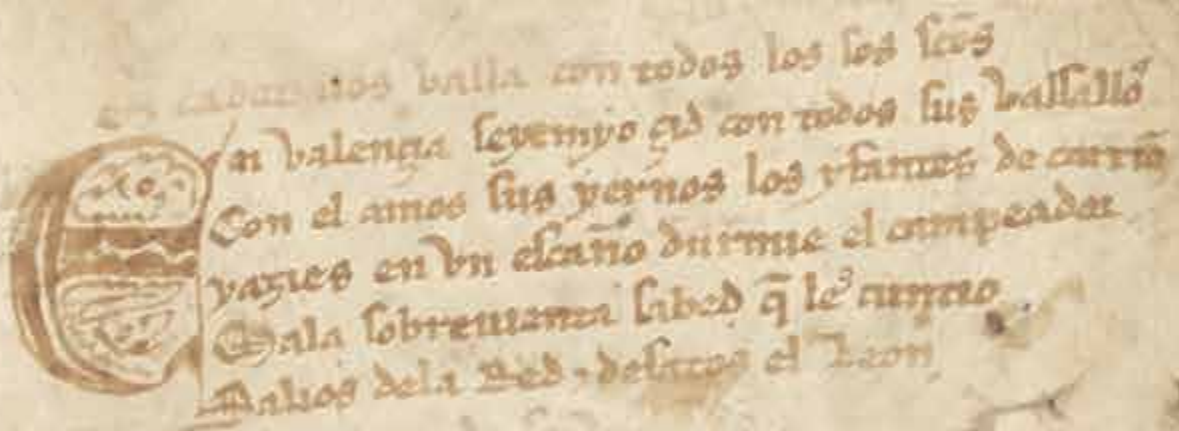 El criador nos valla con todos los sos scōs
En Valençia seye myo çid con todos sus vassallos
Con el amos sus yernos los yfantes de carrion
yazies en vn escaño durmie el campeador
Mala sobreuienta sabed q̄ les cuntio
Salios dela Red ⁊ desatos el Leon